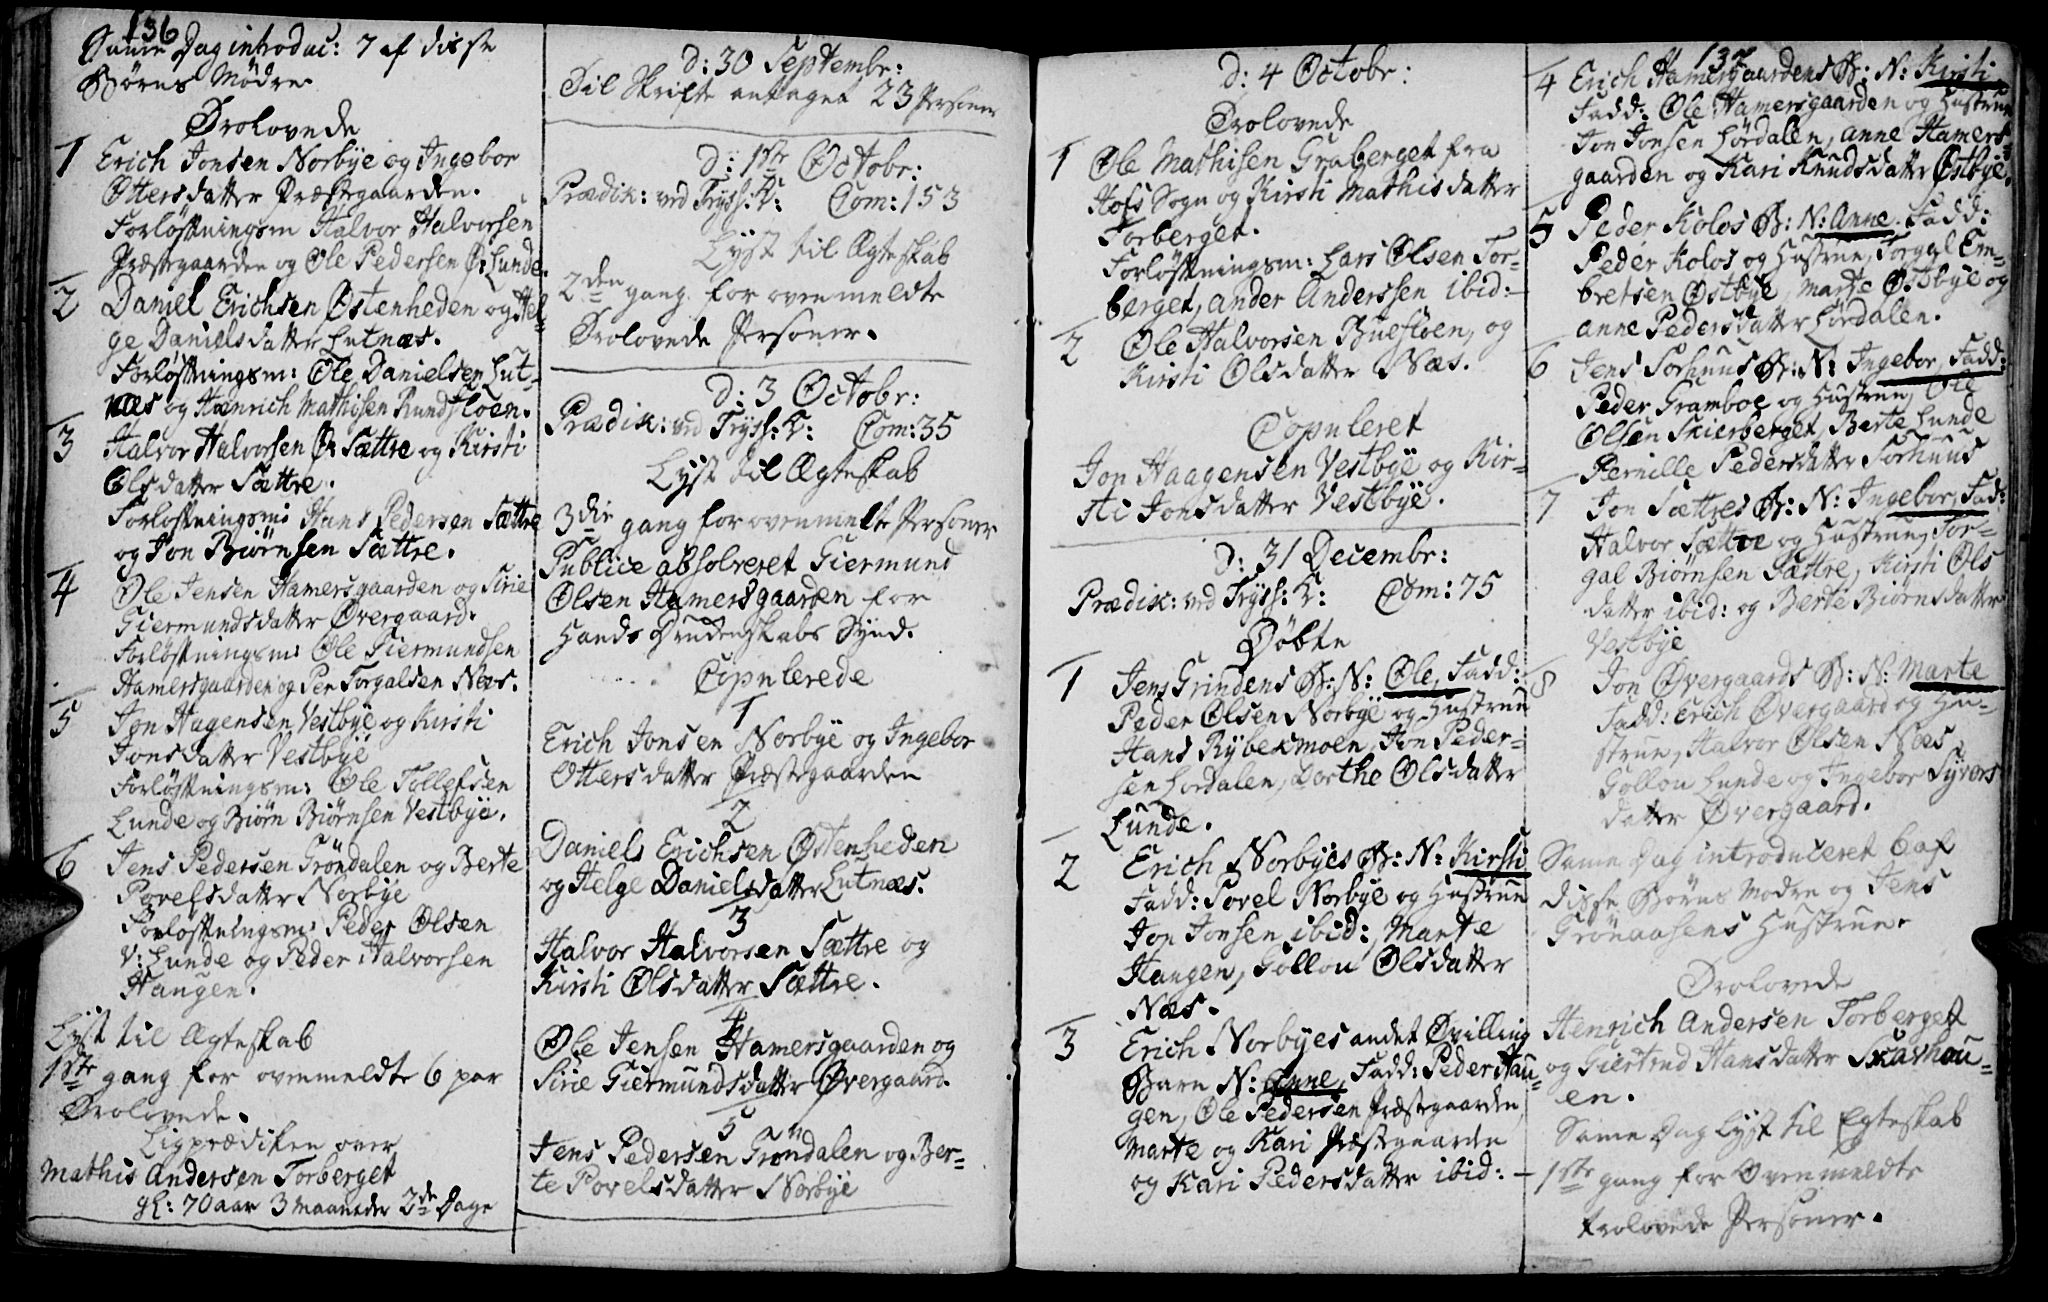 136
Same Dag introduc: 7 af disse
Børns Mødre
Trolovede
1 Erich Jonsen Norbye og Ingebor
Ottersdatter Præstegaarden.
Forløftningsm Halvor Halvorsen
Præstegaarden og Ole Pedersen Ø: Lunde.
2 Daniel Erichsen Østenheden og Hel-
ge Danielsdatter Lutnæs.
Forløftningsm: Ole Danielsen Lut-
næs og Hænrich Mathisen Rundfloen.
3 Halvor Halvorsen Ø: Sættre og Kirsti
Olsdatter Sættre.
Forløftningsm: Hans Pedersen Sættre
og Jon Biørnsen Sættre.
4 Ole Jensen Hamersgaarden og Sirie
Giermundsdatter Øvergaard.
Forløftningsm: Ole Giermundsen
Hamersgaarden og Per Torgalsen Næs.
5 Jon Hagensen Vestbye og Kirsti
Jonsdatter Vestbye
Forløftningsm: Ole Tollefsen
Lunde og Biørn Biørnsen Vestbye.
6 Jens Pedersen Trøndalen og Berte
Povelsdatter Norbye
Forløftningsm: Peder Olsen
V: Lunde og Peder Halvorsen
Haugen.
Lyst til Ægteskab
1ste gang for ovenmeldte 6 par
Trolovede.
Ligprædiken over
Mathis Andersen Torberget
gl: 70 aar 3 maaneder 2de Dage
d: 30 Septembr:
Til Skrifte antaget 23 Personer
d: 1ste Octobr:
Prædik: ved Tryss: K: Com: 153
Lyst til Ægteskab
2den gang for ovenmeldte
Trolovede Personer.
d: 3 Octobr:
Prædik: ved Tryss: K: Com: 35
Lyst til Ægteskab
3die gang for ovenmelte Personer
Publice absolveret Giermund
Olsen Hamersgaarden for
Hands Synd.
Copulerede
1
Erich Jonsen Norbye og Ingebor
Ottersdatter Præstegaarden
2
Daniels Erichsen Østenheden
og Helge Danielsdatter Lutnæs.
3
Halvor Halvorsen Sættre og
Kirsti Olsdatter Sættre.
4
Ole Jensen Hamersgaarden og
Sirie Giermundsdatter Øvergaard.
5
Jens Pedersen Trøndalen og Ber-
te Povelsdatter Norbye
d: 4 Octobr:
Trolovede
1 Ole Mathisen Graberget fra
Hofs Sogn og Kirsti Mathisdatter
Torberget.
Forløftningsm: Lars Olsen Tor-
berget, ander Anderssen ibid:
2 Ole Halvorsen Buefloen, og
Kirsti Olsdatter Næs.
Copuleret
Jon Haagensen Vestbye og Kir-
sti Jonsdatter Vestbye.
d: 31 Decembr:
Prædik: ved Tryss: K: Com: 75
Døbte
1 Jens Grindens B: N: Ole, Fadd:
Peder Olsen Norbye og Hustrue
Hans Rybexmoen, Jon Peder-
sen Lørdalen, Dorthe Olsdatter
Lunde.
2 Erich Norbyes B: N: Kirsti
Fadd: Povel Norbye og Hustrue
Jon Jonsen ibid: Marte
Haugen, Gollou Olsdatter
Næs.
3 Erich Norbyes andet Tvilling
Barn N: Anne, Fadd: Peder Hau-
gen, Ole Pedersen Præstegaarden
Marte og Kari Præstgaarden
og Kari Pedersdatter ibid: -
137
4 Erich Hamersgaardens B: N: Kirsti
Fadd: Ole Hamersgaarden og Hustrue
Jon Jonsen Lørdalen, anne Hamers-
gaarden og Kari Knudsdatter Østbye.
5 Peder Kolos B: N: Anne. Fadd:
Peder Kolos og Hustrue, Torgal Em-
bretsen Østbye, Marte Østbye og
anne Pedersdatter Lørdalen.
6 Jens Sorhuus B: N: Ingebor, Fadd:
Peder Gramboe og Hustrue, Ole
Olsen Skierberget, Berte Lunde
Pernille Pedersdatter Sorhuus
7 Jon Sættres B: N: Ingebor, Fad:
Halvor Sættre og Hustrue, Tor-
gal Biørnsen Sættre, Kirsti Ols
datter ibid: og Berte Biørnsdatter
Vestbye
8 Jon Øvergaards B: N: Marte
Fadd: Erich Øvergaard og Hu-
strue, Halvor Olsen Næs,
Gollou Lunde og Ingebor Syvers
datter Øvergaard.
Same Dag introduceret 6 af
disse Børns Modre og Jens
Grønaasens Hustrue
Trolovede
Henrich Andersen Torberget
og Giertrud Hansdatter Skavhou-
en.
Same Dag Lyst til Egteskab
1ste gang for Ovenmeldte
trolovede Personer.